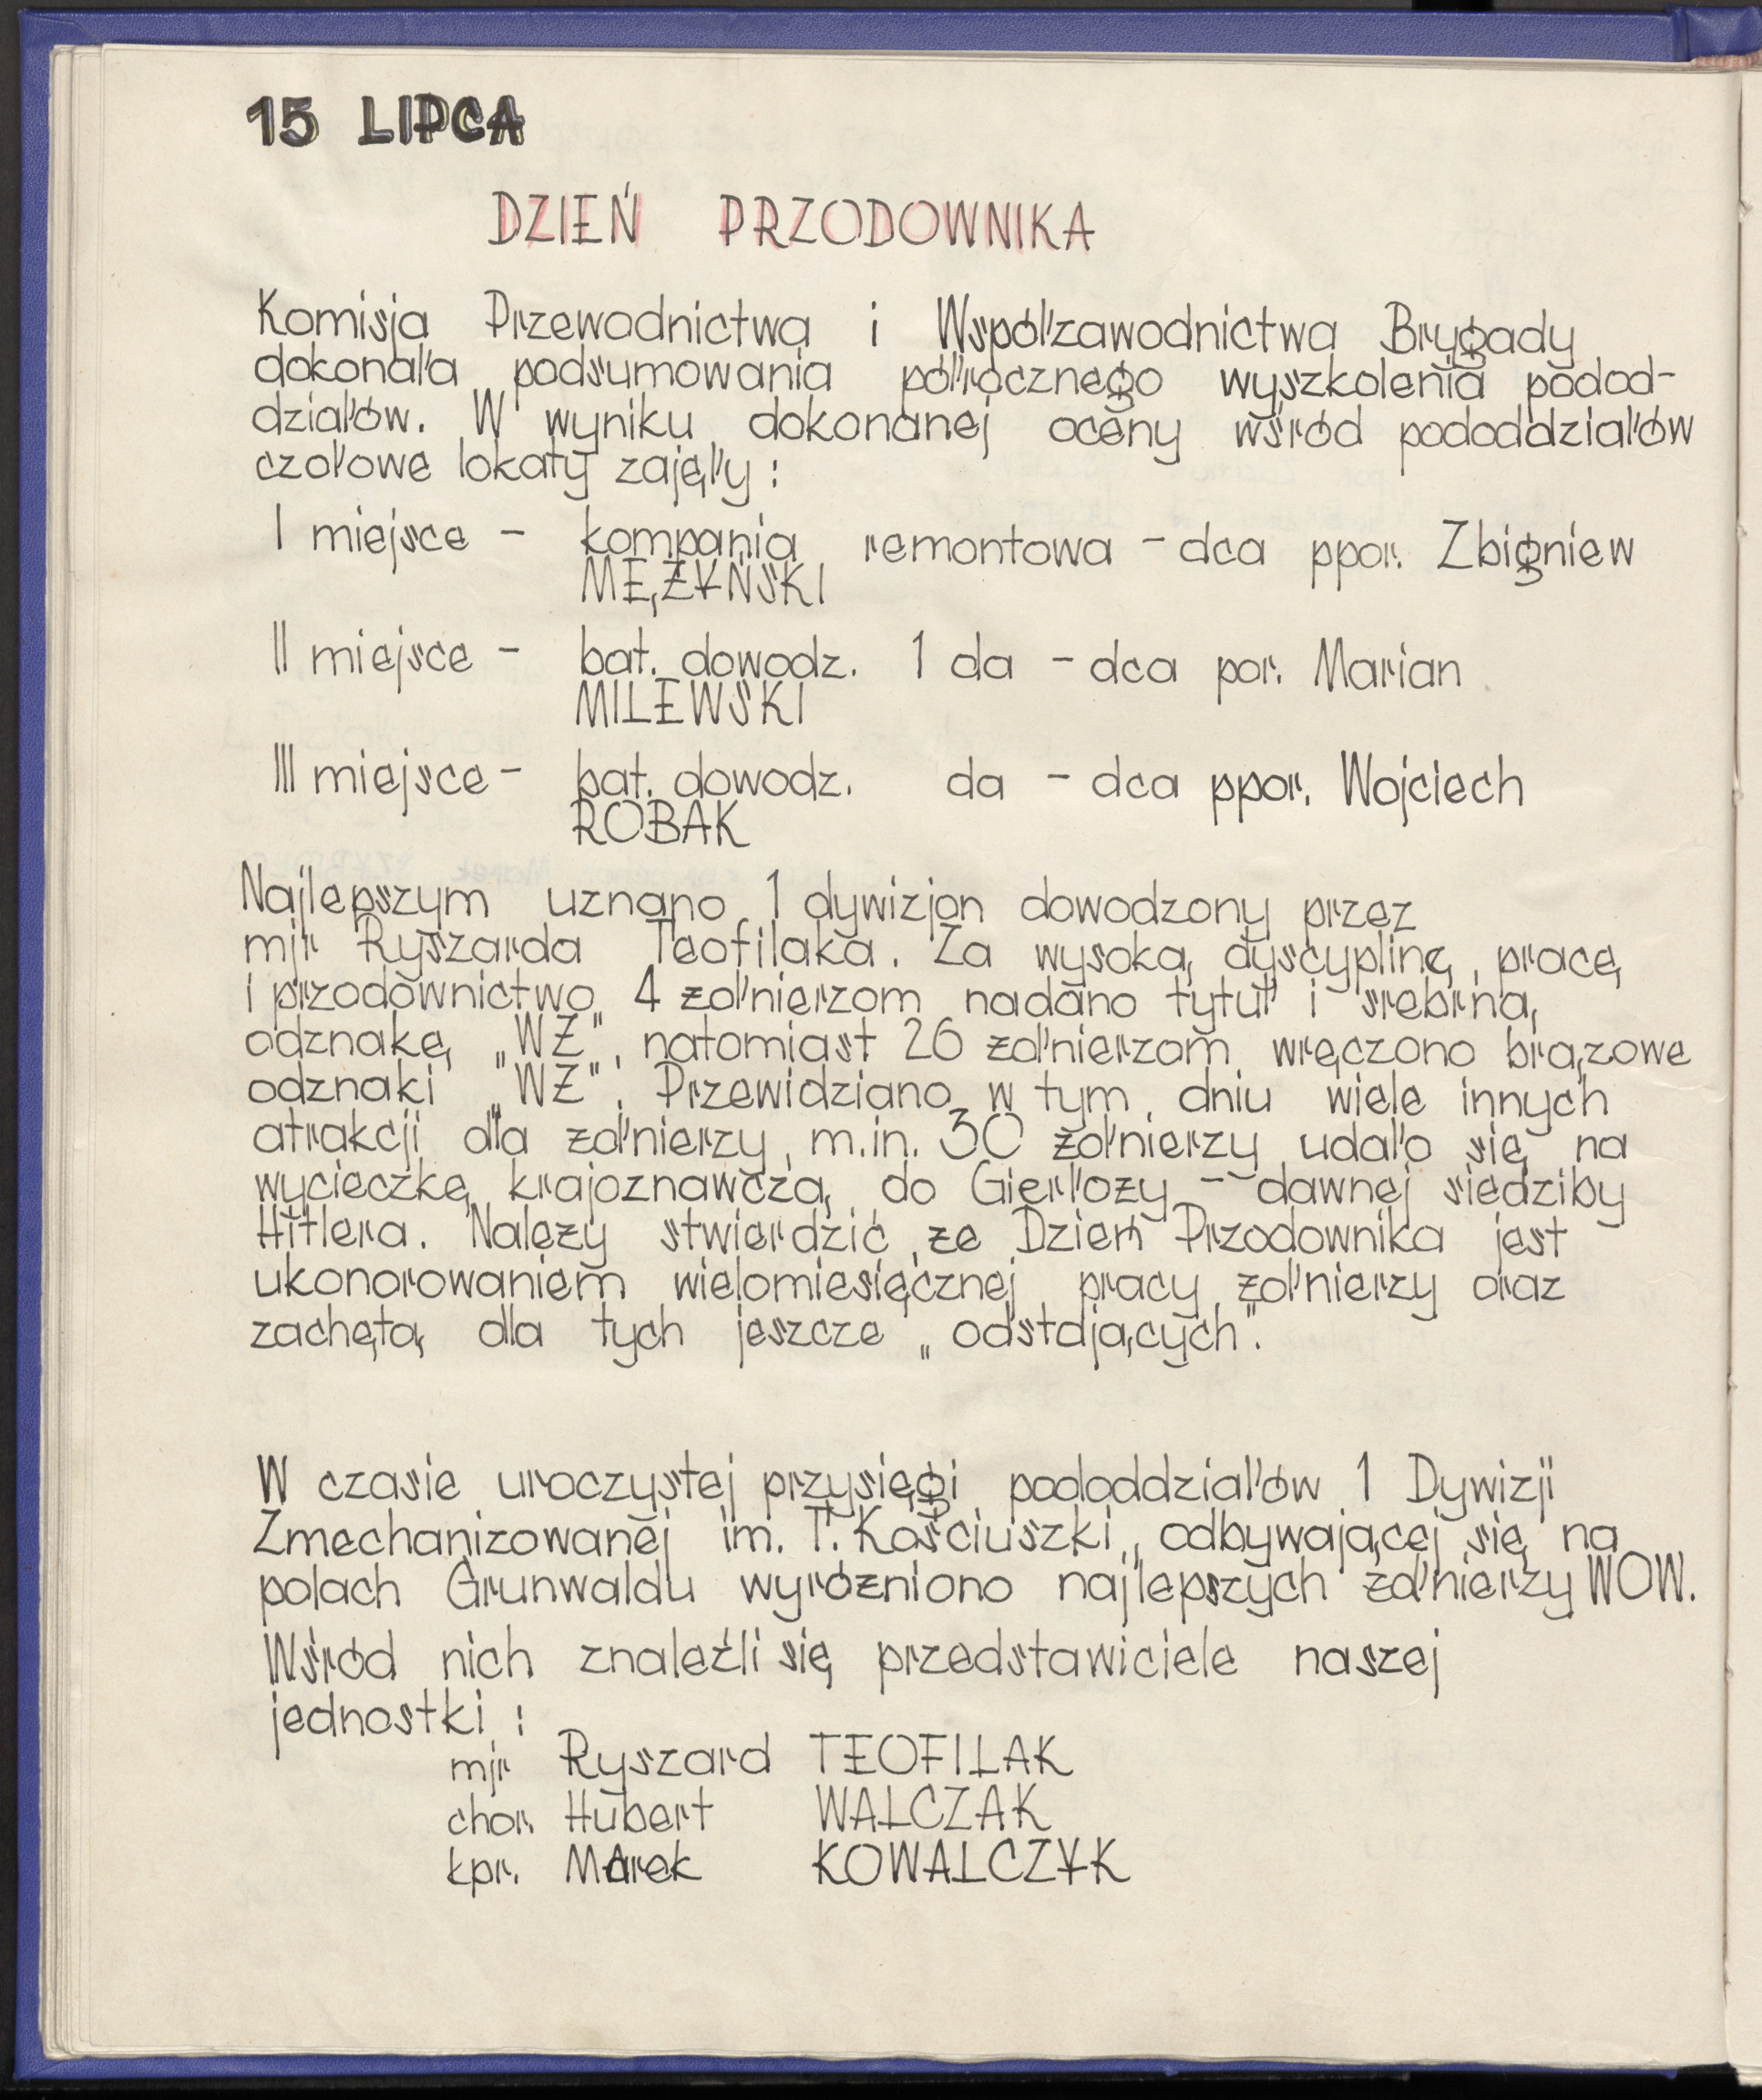 15 LIPCA
DZIEŃ PRZODOWNIKA
Komisja Przewodnictwa i Współzawodnictwa Brygady
dokonała podsumowania półrocznego wyszkolenia podod-
działów. W wyniku dokonanej oceny wśród pododdziałów
czołowe lokaty zajęły:
I miejsce - kompania remontowa - dca ppor. Zbigniew
MĘŻYŃSKI
II miejsce - bat. dowodz. 1 da - dca por. Marian
MILEWSKI
III miejsce - bat. dowodz. da - dca ppor. Wojciech
ROBAK
Najlepszym uznano 1 dywizjon dowodzony przez
mjr Ryszarda Teofilaka. Za wysoką dyscyplinę, pracę
i przodownictwo 4 żołnierzom nadano tytuł i srebrną
odznakę „WŻ", natomiast 26 żołnierzom wręczono brązowe
odznaki „WŻ". Przewidziano w tym dniu wiele innych
atrakcji dla żołnierzy, m.in. 30 żołnierzy udało się na
wycieczkę krajoznawczą do Gierłoży - dawnej siedziby
Hitlera. Należy stwierdzić, że Dzień Przodownika jest
ukonorowaniem wielomiesięcznej pracy żołnierzy oraz
zachętą dla tych jeszcze „odstających".
W czasie uroczystej przysięgi pododdziałów 1 Dywizji
Zmechanizowanej im. T. Kościuszki, odbywającej się na
polach Grunwaldu wyróżniono najlepszych żołnierzy WOW.
Wśród nich znaleźli się przedstawiciele naszej
jednostki:
mjr Ryszard TEOFILAK
chor. Hubert WALCZAK
kpr. Marek KOWALCZYK